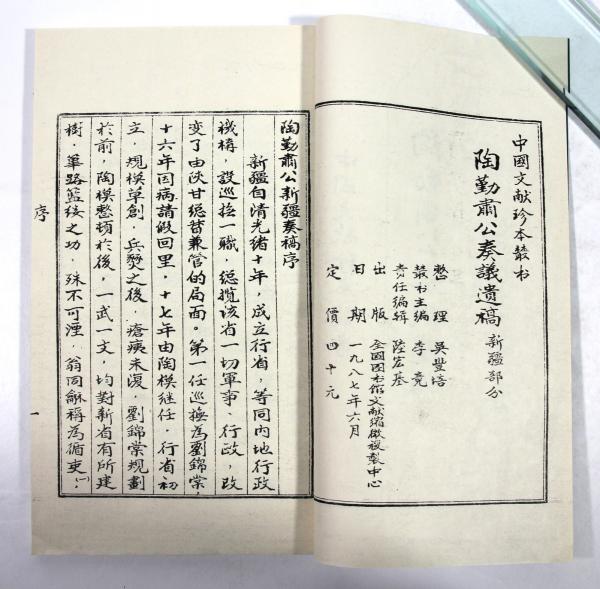 中國文献珍本叢书
陶勤肅公奏議遺稿 新疆部分
整理 吳豐培
叢书主编 李竞
责任编辑 陸宏基
出版 全國图书館文献缩微複製中心
日期 一九八七年六月
定價 四十元
陶勤肅公新疆奏稿序
新疆自清光緒十年，成立行省，等同內地行政
機構，設巡撫一職，總攬該省一切軍事、行政，改
变了由陜甘總督兼管的局面。第一任巡撫為劉錦棠，
十六年因病請假回里，十七年由陶模继任，行省初
立，規模草創，兵燹之後，瘡痍未復，劉錦棠規劃
於前，陶模整頓於後，一武一文，均對新省有所建
樹，篳路藍縷之功，殊不可湮，翁同龢稱為循吏㈠，
序
一